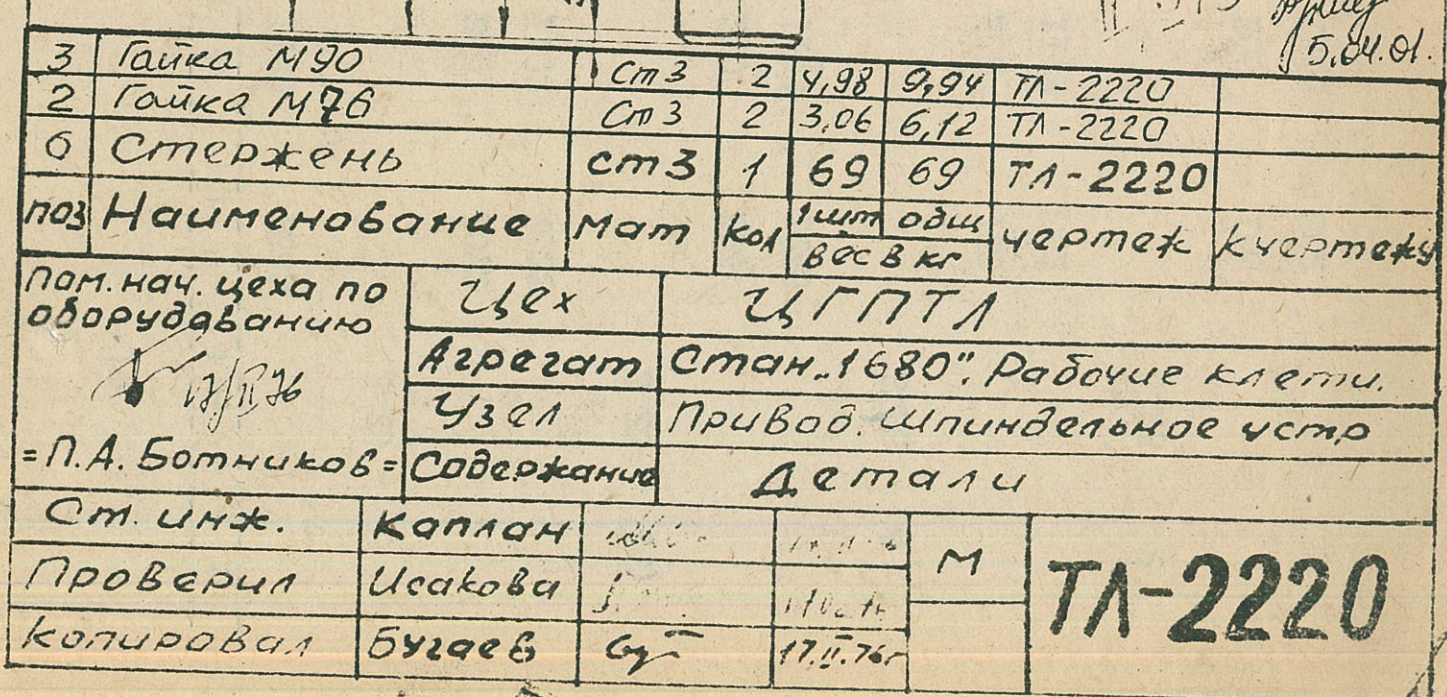 5.04.01.
3 Гайка М90 Ст3 2 4,98 9,94 ТЛ-2220
2 Гайка М76 Ст3 2 3,06 6,12 ТЛ-2220
6 Стержень ст3 1 69 69 ТЛ-2220
поз Наименование Мат кол 1шт общ чертеж К чертежу
вес в кг
Пом. нач. цеха по
оборудованию
=П.А. Ботников=
Цех ЦГПТЛ
Агрегат Стан „1680". Рабочие клети.
Узел Привод. Шпиндельное устр
Содержание Детали
Ст. инж. Каплан
М
ТЛ-2220
Проверил Исакова
Копировал Бугаев 17.II.76г